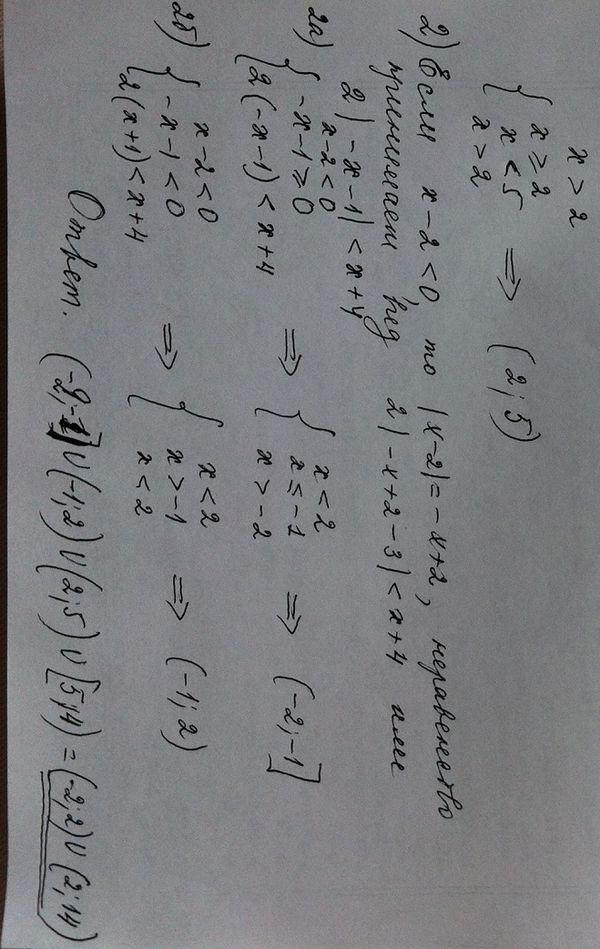 x > 2
{ x ≥ 2
x < 5
x > 2 ⇒ (2; 5)
2) Если x-2<0, то |x-2| = -x+2, неравенство
принимает вид 2|-x+2-3| < x+4 или
2|-x-1| < x+4
2а) { x-2<0
-x-1≥0
2(-x-1) < x+4 ⇒ { x<2
x≤-1
x>-2 ⇒ (-2; -1]
2б) { x-2<0
-x-1<0
2(x+1) < x+4 ⇒ { x<2
x>-1
x<2 ⇒ (-1; 2)
Ответ. (-2; -1] ∪ (-1; 2) ∪ (2; 5) ∪ [5; 14) = (-2; 2) ∪ (2; 14)